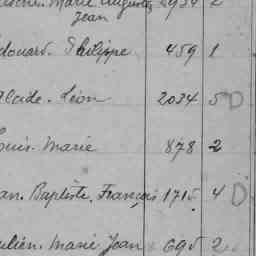 Marie Auguste 2
Jean
Édouard. Philippe 459 1
Alcide. Léon 2034 5 D
Louis. Marie 878 2
Jean. Baptiste. François 1715 4 D
Julien. Marie Jean 695 2